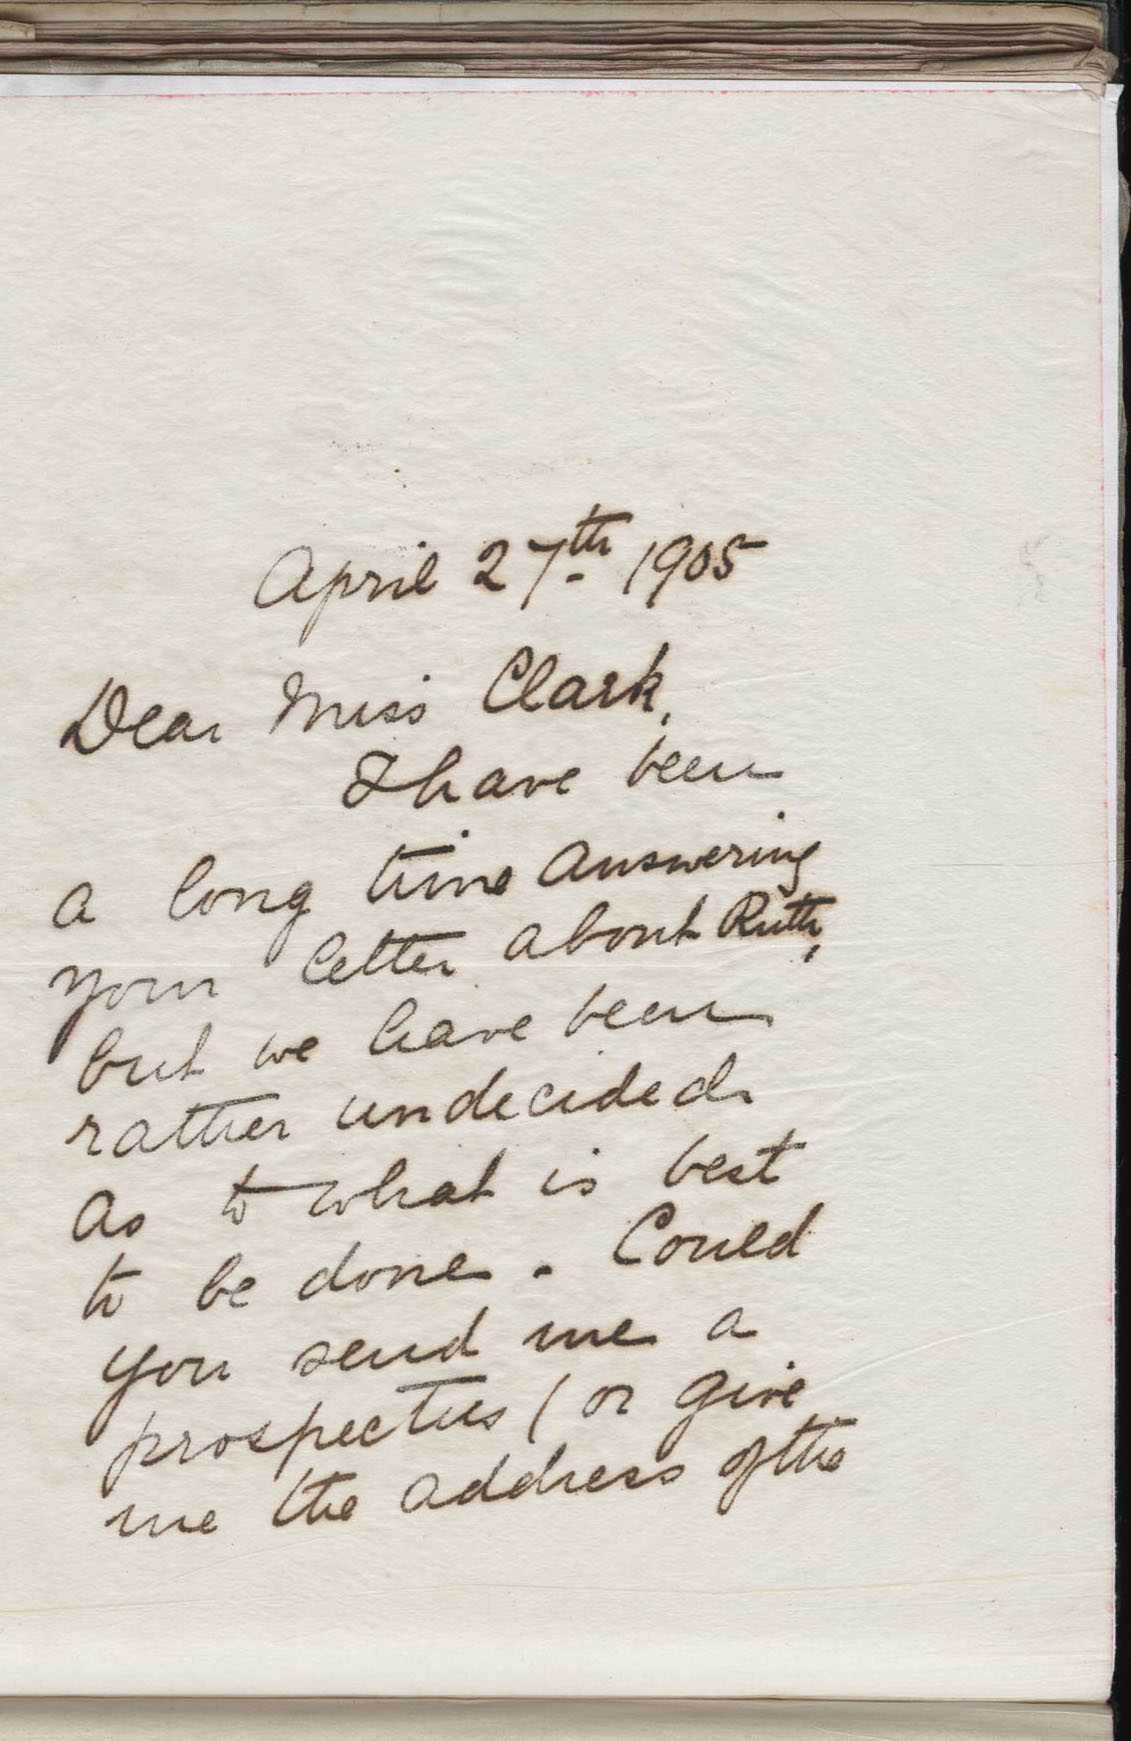 April 27th 1905
Dear Miss Clark,
I have been
a long time answering
your letter about Ruth,
but we have been
rather undecided
as to what is best
to be done. Could
you send me a
prospectus (or give
me the address of the